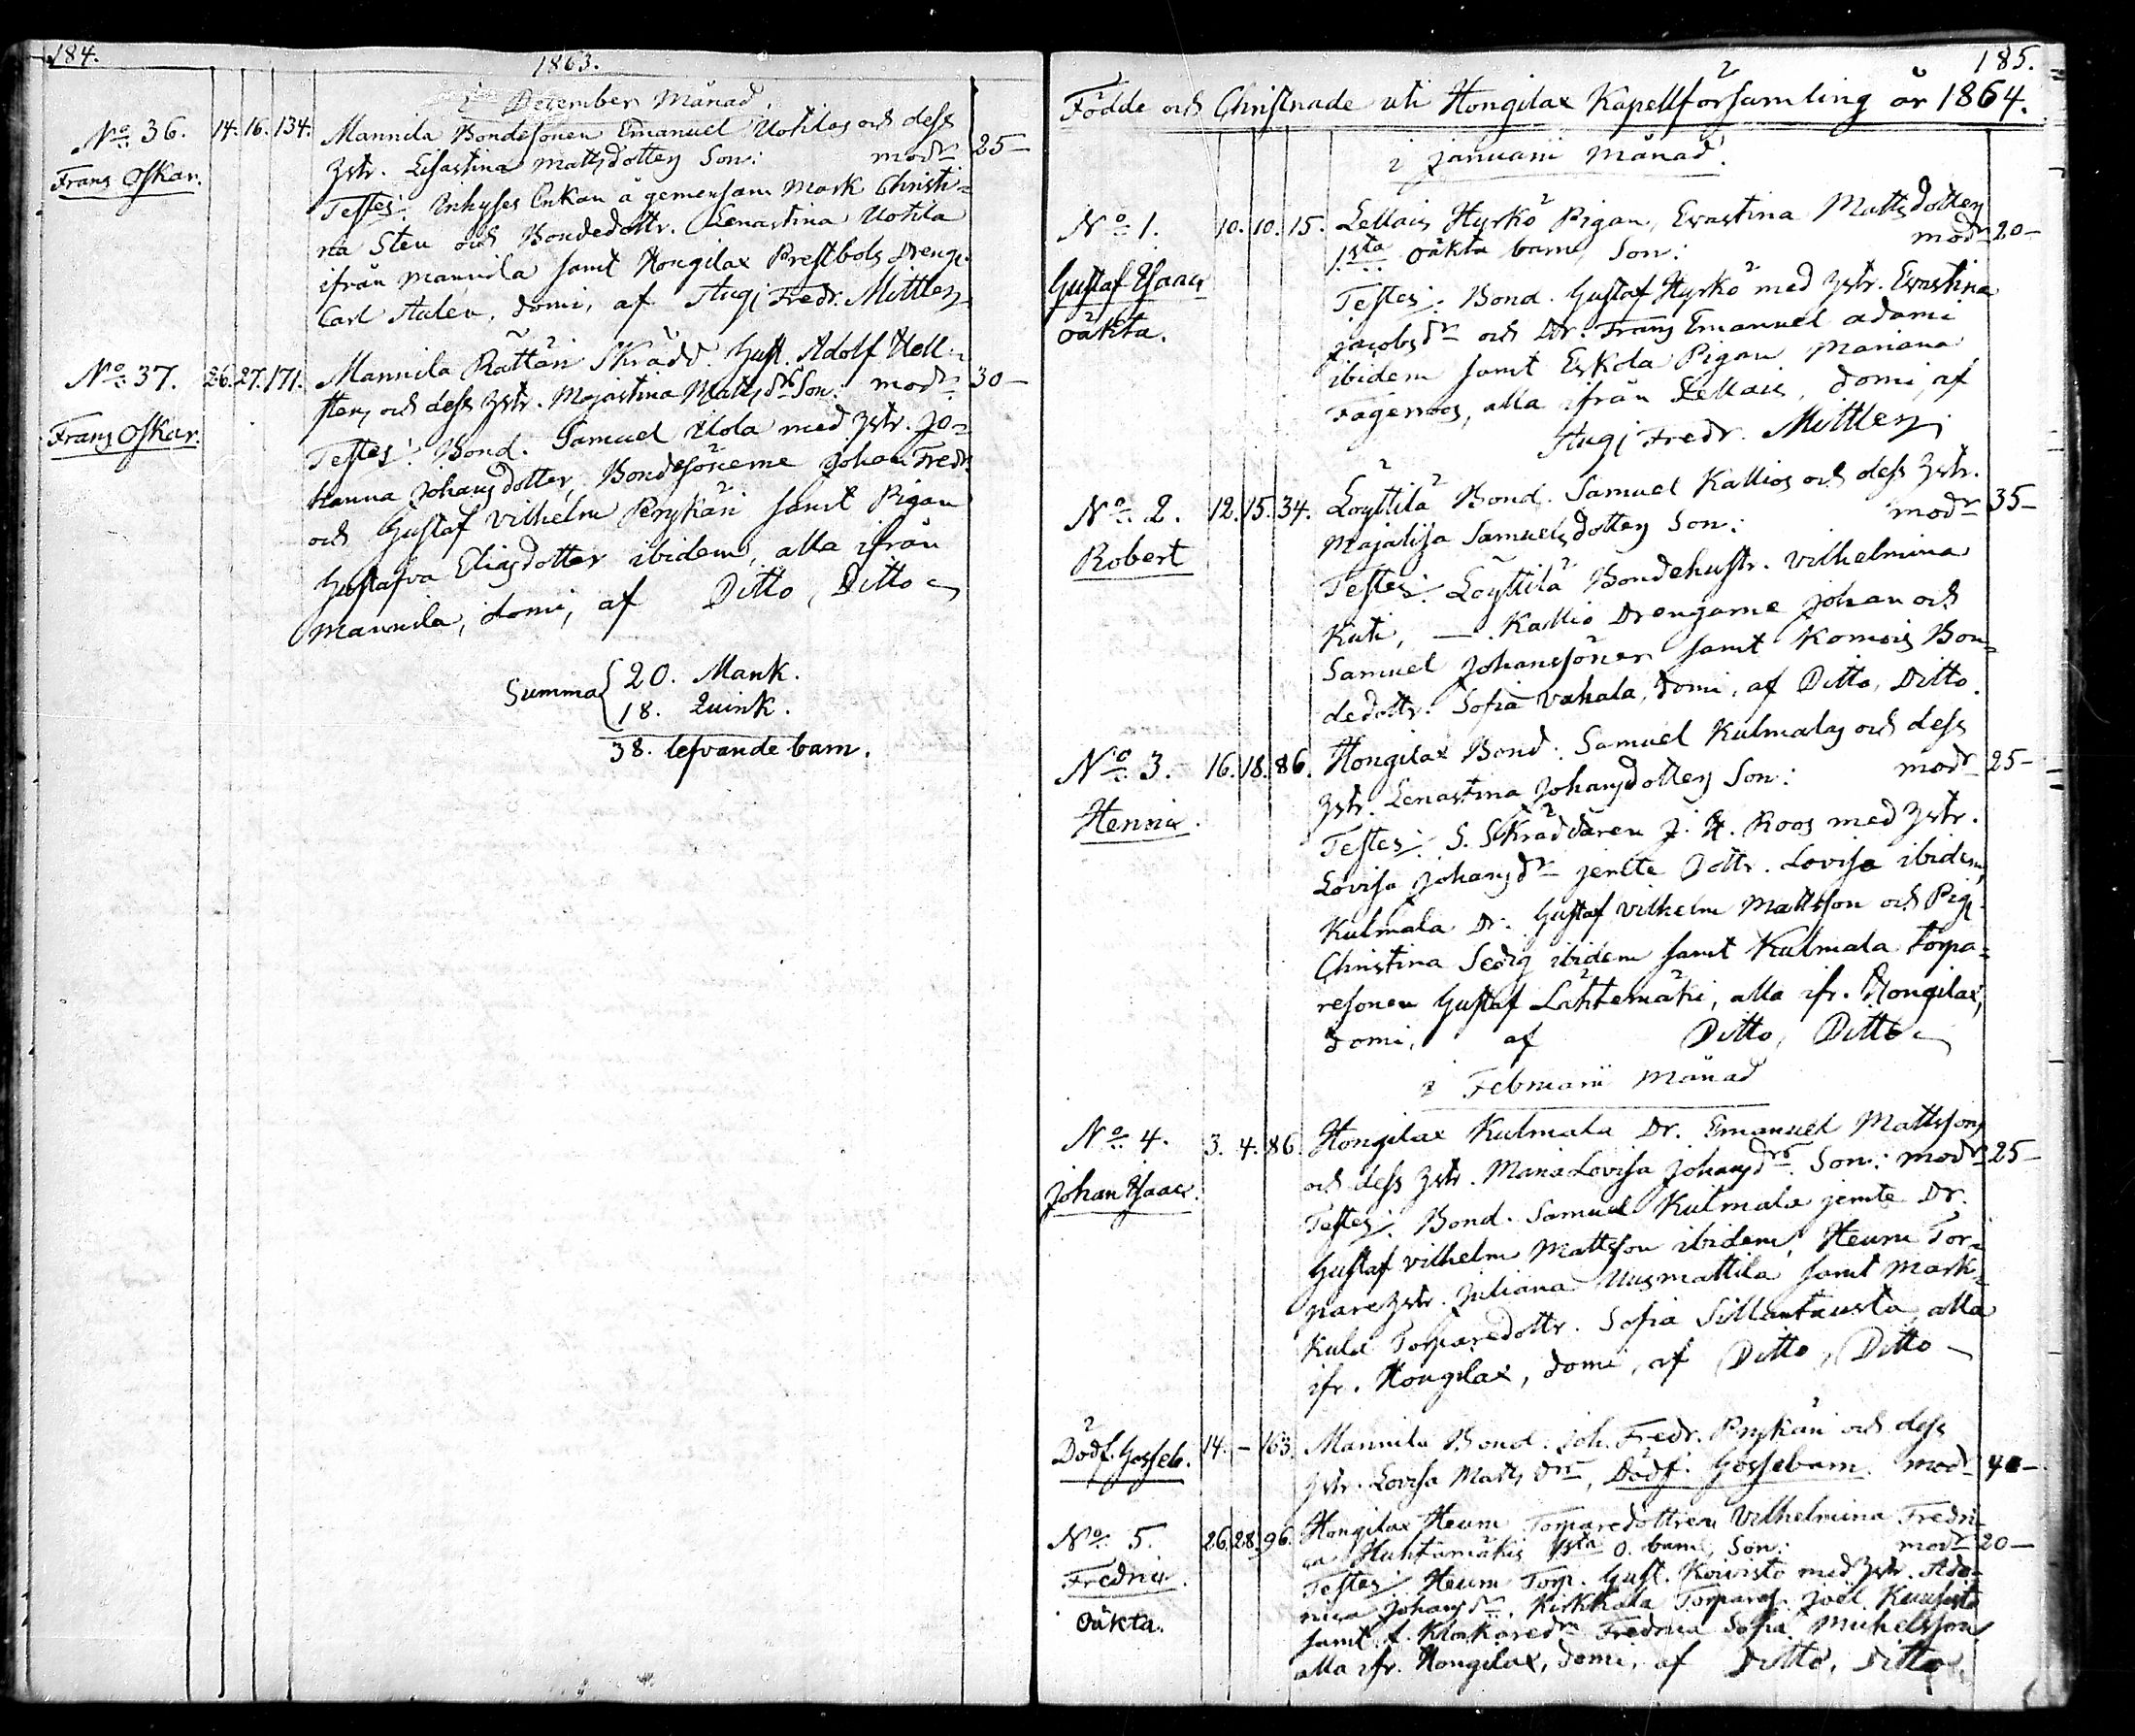 184.
1863.
i December Månad.
No. 36. 14. 16. 134. Mannila Bondesonen Emanuel Uotilas och dess
Hstr. Lisastina Mattsdotters Son: modr 25–
Frans Oskar.
Testes: Inhyses Enkan å gemensam mark Christi=
na Sten och Bondedottr. Lenastina Uotila
ifrån Mannila samt Hongilax Prestbols Dreng.
Carl Stalen, domi, af Aug: Fredr. Mittler
No. 37. 26. 27. 171. Mannila Rättari Skrädd. Gust. Adolf Hell=
stens och dess Hstr. Majastina Matts drs Son: modr 30–
Frans Oskar.
Testes: Bond. Samuel Uola med Hstr. Jo=
hanna Johansdotter, Bondesönerne Johan Fredr.
och Gustaf Vilhelm Prykäri samt Pigan
Gustafva Eliasdotter ibidem, alla ifrån
Mannila, domi, af Ditto, Ditto
Summa 20. Mank.
18. Quink.
38. lefvande barn.
185.
Födde och Christnade uti Hongilax Kapellförsamling år 1864.
i Januarii Månad.
No. 1. 10. 10. 15. Lellais Hyrkö Pigan, Evastina Mattsdotters
1sta oäkta barn, Son: modr 20–
Gustaf Isaac
oäkta.
Testes: Bond. Gustaf Hyrkö med Hstr. Evastina
Jacobsdr och Dr. Frans Emanuel Adami
ibidem samt Eskola Pigan Mariana
Fagerroos, alla ifrån Lellais, domi, af
Aug: Fredr. Mittler
No. 2. 12. 15. 34. Löyttilä Bond. Samuel Kallios och dess Hstr.
Majalisa Samuelsdotters Son: modr 35–
Robert
Testes: Löyttilä Bondehustr. Vilhelmina
Kuti, –. Kallio Drengarne Johan och
Samuel Johanssöner samt Komois Bon=
dedottr. Sofia Vahala, domi, af Ditto, Ditto.
No. 3. 16. 18. 86. Hongilax Bond. Samuel Kulmalas och dess
Hstr. Lenastina Johansdotters Son: modr 25–
Henric.
Testes: S. Skräddaren J. H. Roos med Hstr.
Lovisa Johansdr jemte Dottr. Lovisa ibidem,
Kulmala Dr. Gustaf Vilhelm Mattsson och Pig.
Christina Sedig ibidem samt Kulmala Torpa=
resonen Gustaf Lähtemäki, alla ifr. Hongilax,
domi, af Ditto, Ditto
i Februarii Månad
No. 4. 3. 4. 86. Hongilax Kulmala Dr. Emanuel Mattssons
och dess Hstr. Maria Lovisa Johansdrs. Son: modr 25–
Johan Isaac.
Testes: Bond. Samuel Kulmala jemte Dr.
Gustaf Vilhelm Mattsson ibidem, Heurn Tor=
pare Hstr. Juliana Uusmattila samt Mark=
kula Torparedottr. Sofia Sillantausta, alla
ifr. Hongilax, domi, af Ditto, Ditto –
Dödf. Gosseb. 14. – 163. Mannila Bond. Joh. Fredr. Prykäri och dess
Hstr. Lovisa Matts dr, Dödf. Gossebarn. modr 40–
No. 5. 26. 28. 96. Hongilax Heurn Torparedottren Vilhelmina Fredri=
ca Huhtamäkis 1sta o. barn, Son: modr 20–
Fredric.
Oäkta.
Testes: Heurn Torp. Gust. Koivisto med Hstr. Ado=
rica Johansdr, Kirkkala Torpares. Joël Kuusisto
samt f. Klockaredr Fredrica Sofia Michelsson,
alla ifr. Hongilax, domi, af Ditto, Ditto